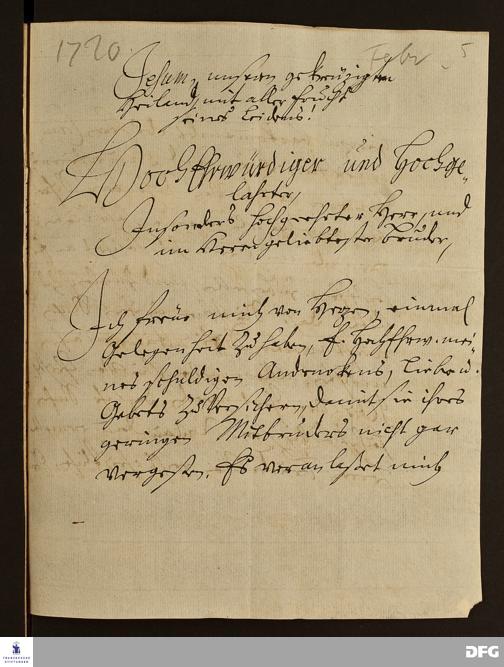 1720.
Febr. 5
Jesum, unsern gekreuzigten
Heiland, mit aller Frucht
seines Leidens!
HochEhrwürdiger und Hochge-
lahrter,
Insonders hochgeehrter Herr, und
im Herrn geliebtester Bruder,
Ich freue mich von Herzen, einmal
Gelegenheit zu haben, E. HochEhrw. mei-
nes schuldigen Andenckens, Liebe u.
Gebets zu versichern, damit sie ihres
geringen Mitbruders nicht gar
vergessen. Es veranlaßet mich
FRANCKESCHE
STIFTUNGEN
DFG